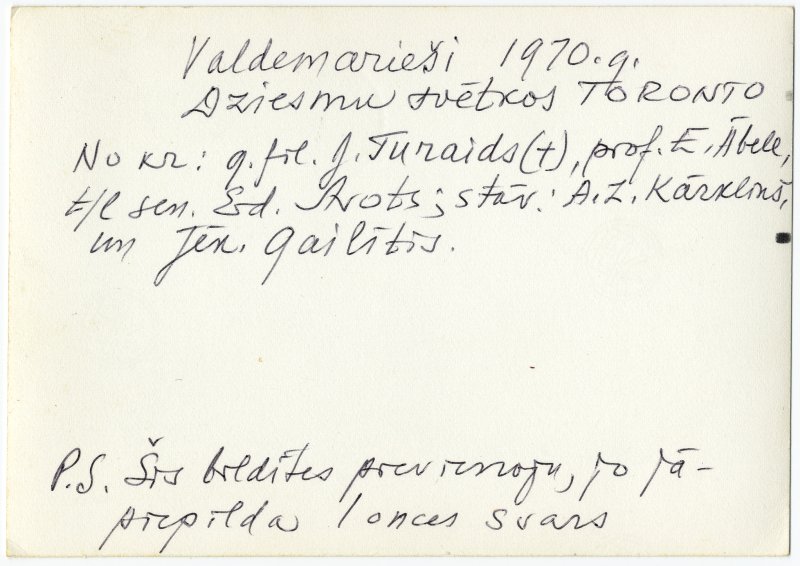 Valdemarieši 1970.g.
Dziesmu svētkos TORONTO
No kr: g.fil. J. Turaids(+), prof. E. Ābele,
t/l sen. Ed. Avots; stāv: A.Z. Kārkliņš,
un Jēk. Gailītis.
P.S. Šīs bildītes pievienoju, jo jā-
piepilda 1 onces svars